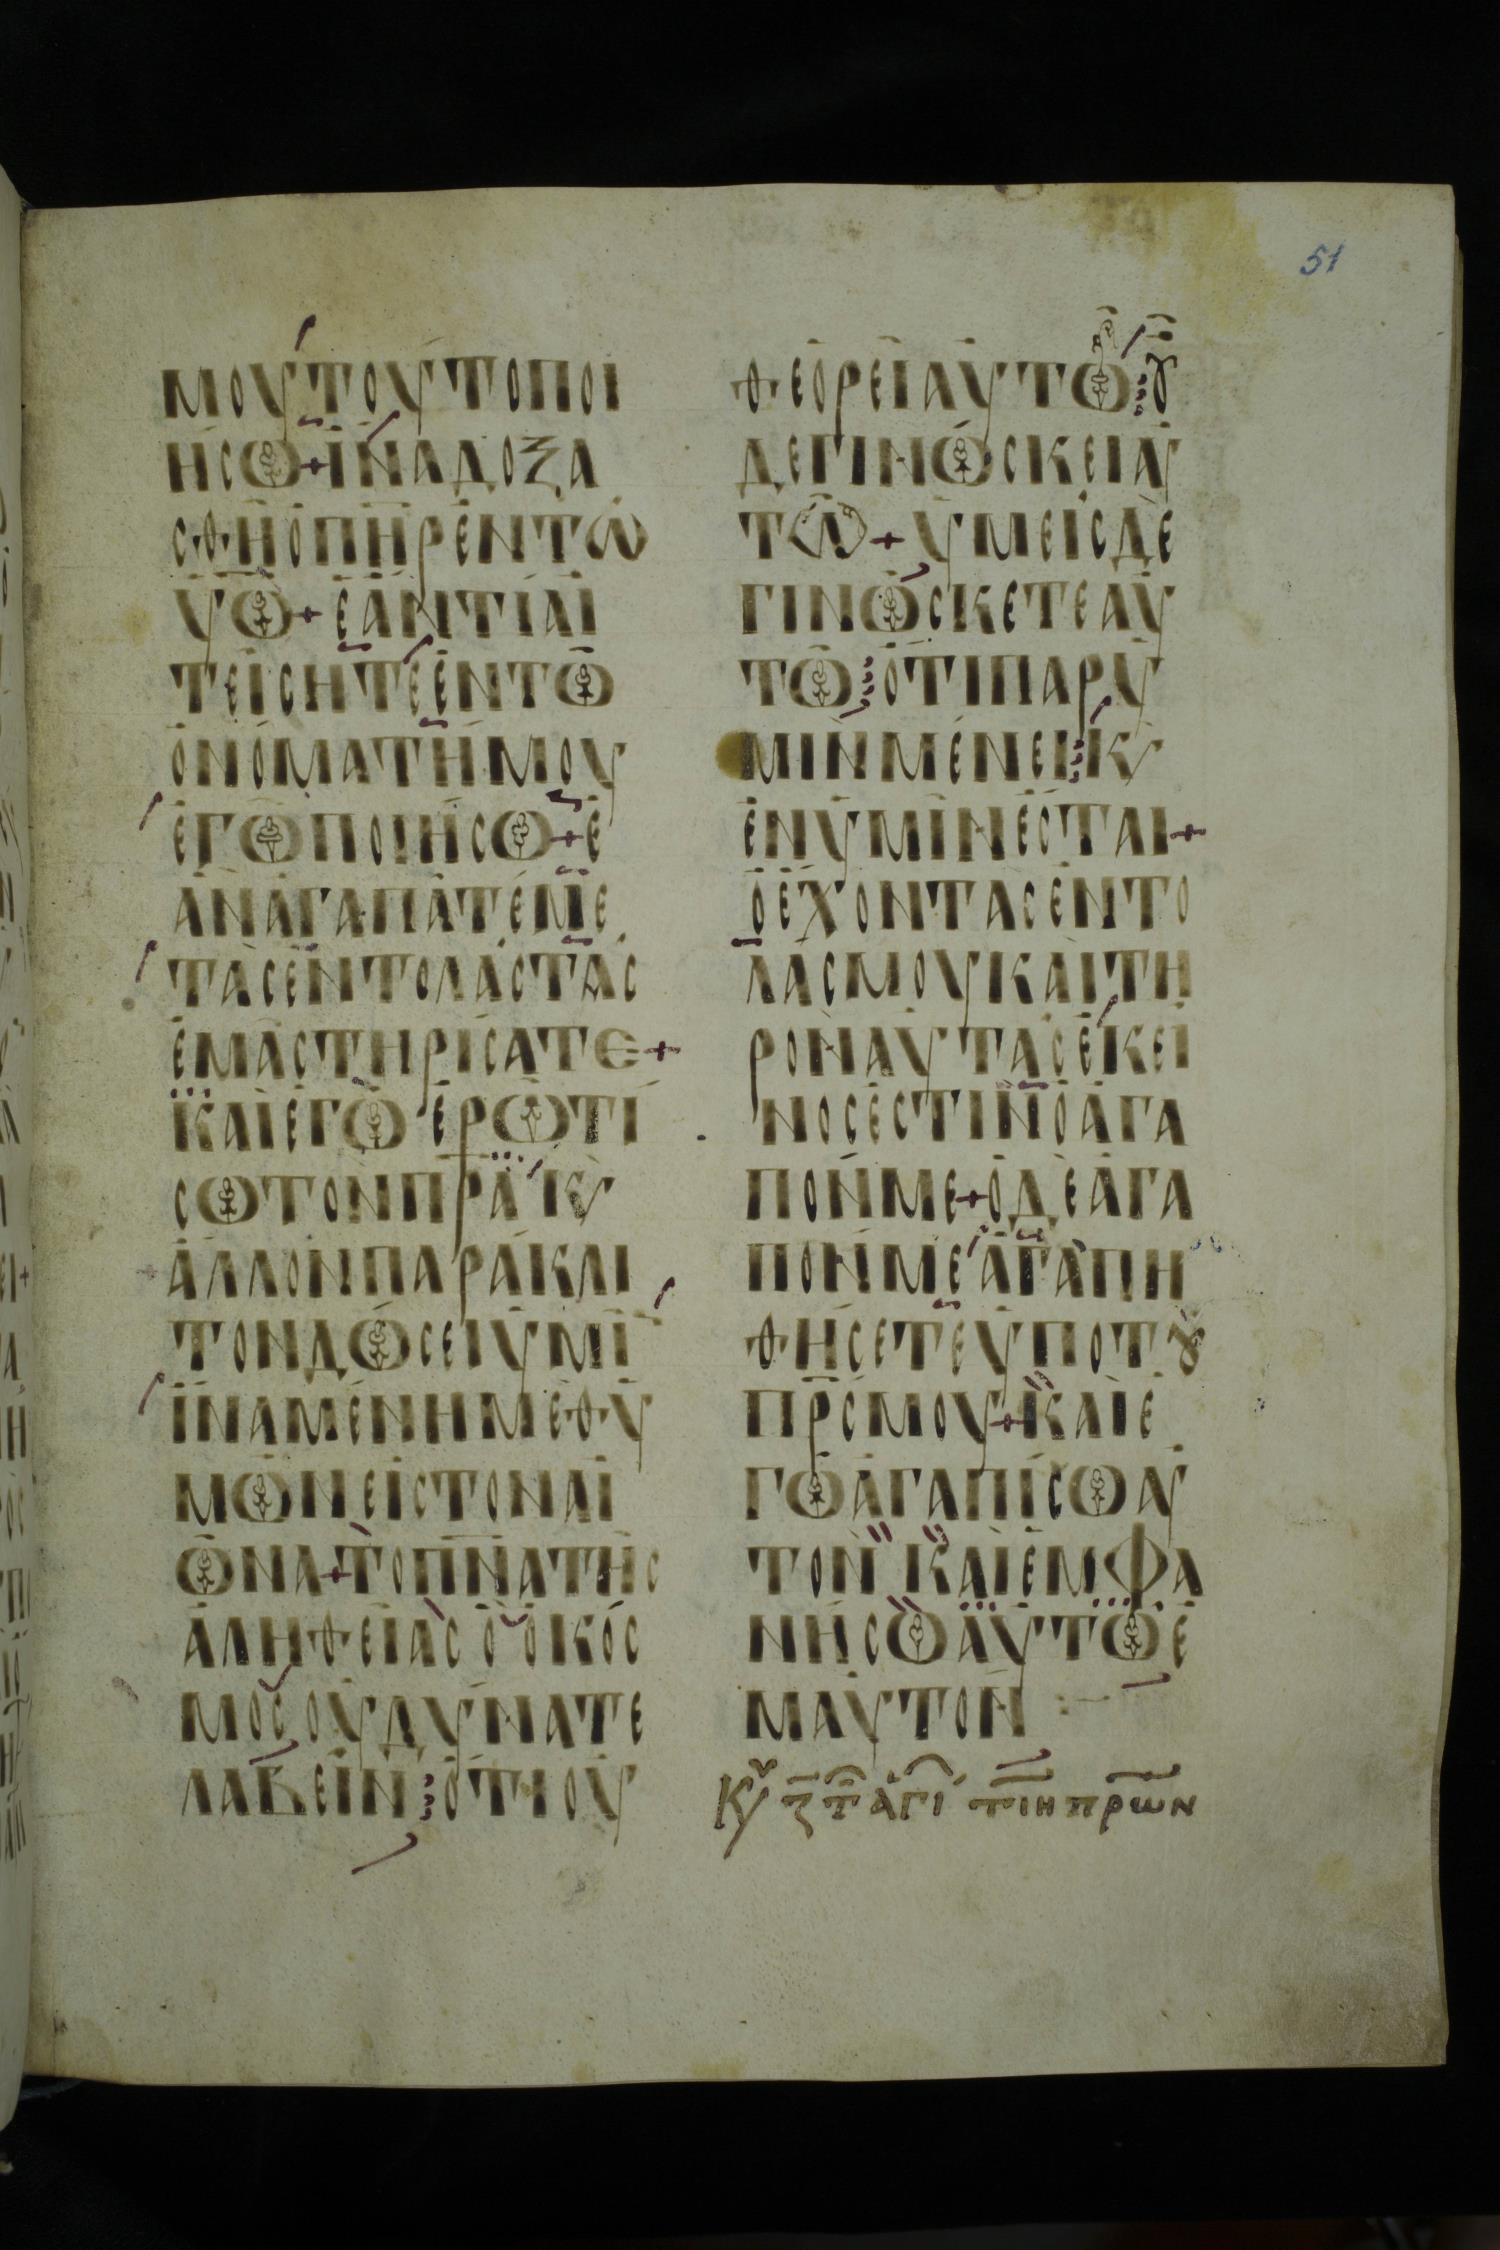 51
ΜΟΥΤΟΥΤΟΠΟΙ
ΗСΩ+ΙΝΑΔΟΞΑ
СΘΗΟΠΗΡΕΝΤΩ
ΥΩ+ΕΑΝΤΙΑΙ
ΤΕΙСΗΤΕΕΝΤΩ
ΟΝΟΜΑΤΗΜΟΥ
ΕΓΩΠΟΙΗСΩ+Ε
ΑΝΑΓΑΠΑΤΕΜΕ
ΤΑСΕΝΤΟΛΑСΤΑС
ΕΜΑСΤΗΡΙСΑΤΕ+
ΚΑΙΕΓΩΕΡΩΤΙ
СΩΤΟΝΠΡΑΚΥ
ΑΛΛΟΝΠΑΡΑΚΛΙ
ΤΟΝΔΩСΕΙΥΜΙ
ΙΝΑΜΕΝΗΜΕΘΥ
ΜΩΝΕΙСΤΟΝΑΙ
ΩΝΑ+ΤΟΠΝΑΤΗС
ΑΛΗΘΕΙΑСΟΟΚΟС
ΜΟСΟΥΔΥΝΑΤΕ
ΛΑΒΕΙΝ⁝ΟΤΙΟΥ
ΘΕΟΡΕΙΑΥΤΩ⁝Ȣ
ΔΕΓΙΝΩСΚΕΙΑΥ
ΤΩ+ΥΜΕΙСΔΕ
ΓΙΝΩСΚΕΤΕΑΥ
ΤΩ⁝ΟΤΙΠΑΡΥ
ΜΙΝΜΕΝΕΙ⁝ΚΥ
ΕΝΥΜΙΝΕСΤΑΙ+
ΟΕΧΟΝΤΑСΕΝΤΟ
ΛΑСΜΟΥΚΑΙΤΗ
ΡΟΝΑΥΤΑСΕΚΕΙ
ΝΟСΕСΤΙΝΟΑΓΑ
ΠΟΝΜΕ+ΟΔΕΑΓΑ
ΠΟΝΜΕΑΓΑΠΗ
ΘΗСΕΤΕΥΠΟΤȢ
ΠΡСΜΟΥ+ΚΑΙΕ
ΓΩΑΓΑΠΙСΩΑΥ
ΤΟΝΚΑΙΕΜΦΑ
ΝΗСΩΑΥΤΩΕ
ΜΑΥΤΟΝ
ΚΥ Ζ Τ ΑΓΙ ΤΙΗ ΠΡΩΝ